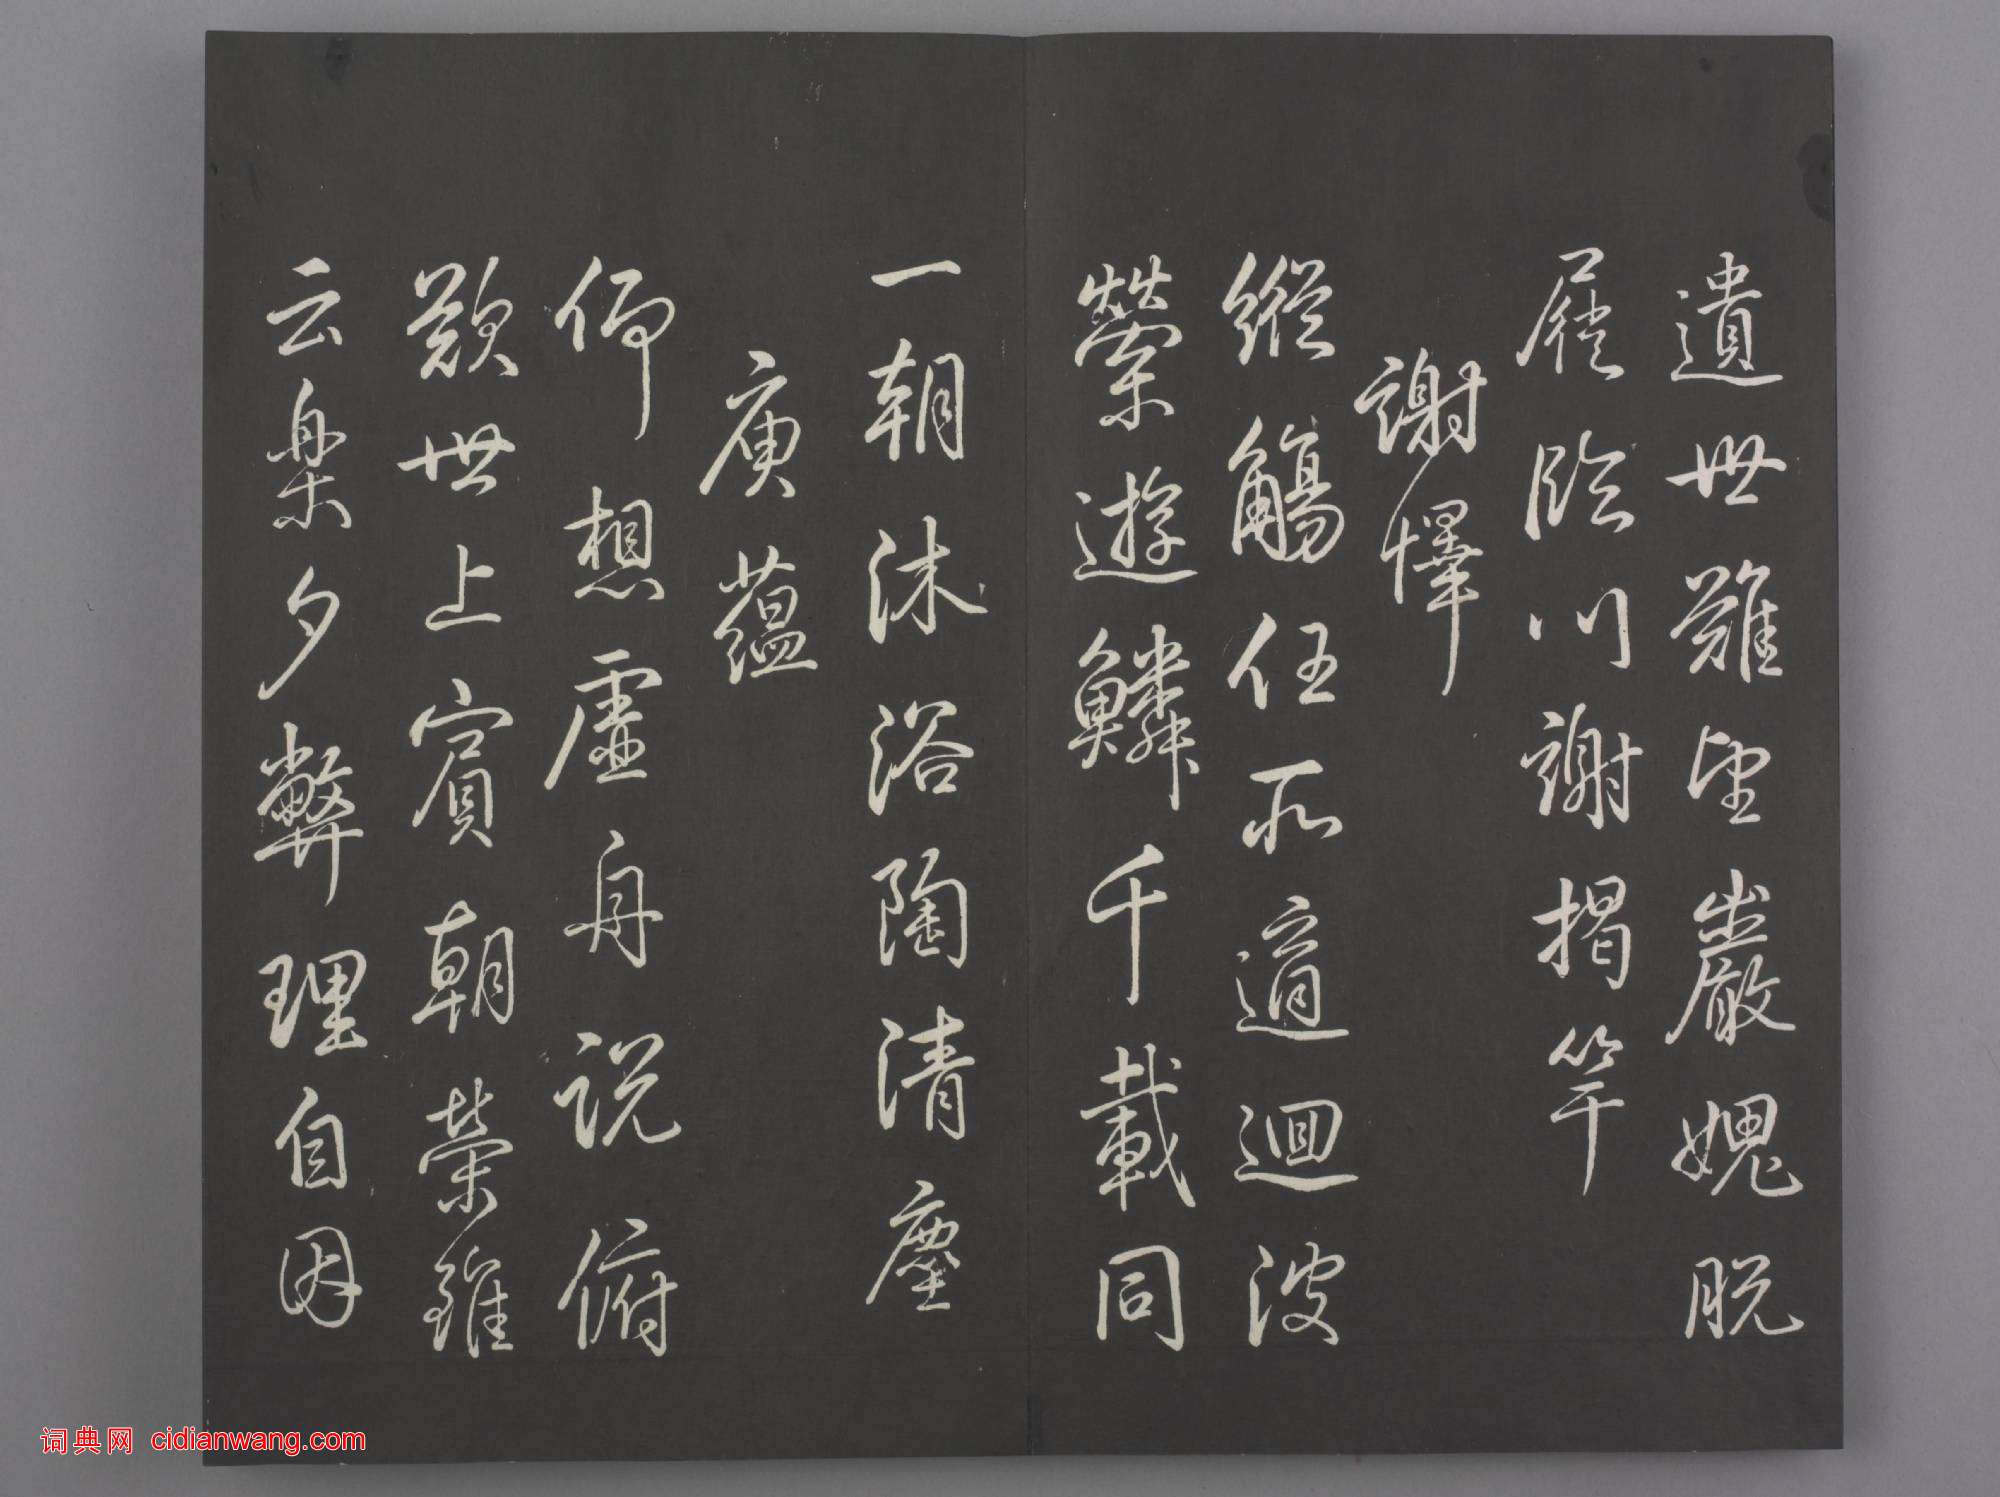 遺世難望巖媿脫
屣臨川謝揭竿
謝懌
縱觴任所適迴波
縈遊鱗千載同
一朝沐浴陶清塵
庾蘊
仰想虛舟說俯
歎世上賓朝榮雖
云樂夕弊理自因
词典网 cidianwang.com